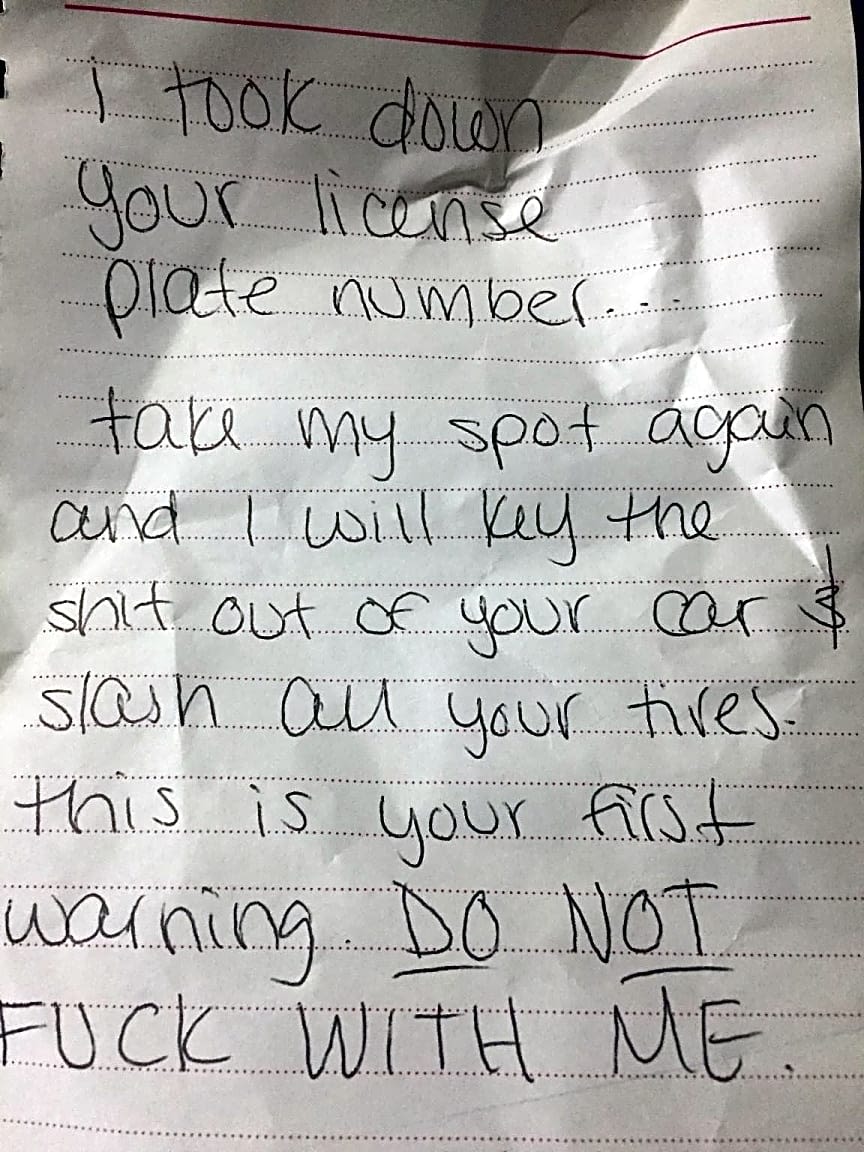 i took down
your license
plate number...
take my spot again
and I will key the
shit out of your car &
slash all your tires.
this is your first
warning. DO NOT
FUCK WITH ME.